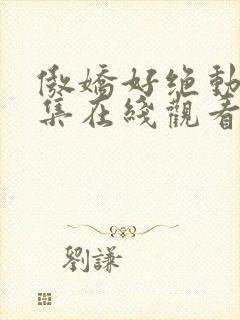 傲嬌好绝動
集在綫觀看
劉謙